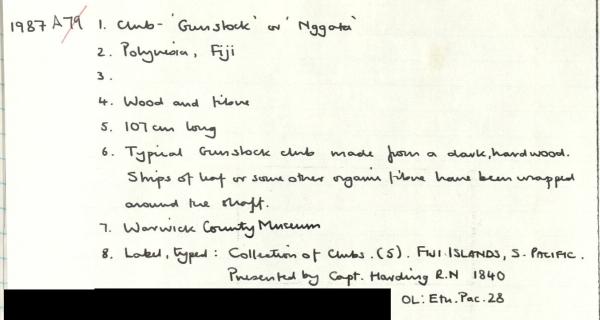 1987 A79 1. Club - 'Gunstock' or 'Nggata'
2. Polynesia, Fiji
3.
4. Wood and fibre
5. 107cm long
6. Typical Gunstock club made from a dark, hard wood.
Strips of leaf or some other organic fibre have been wrapped
around the shaft.
7. Warwick County Museum
8. Label, typed: Collection of Clubs. (5). FIJI ISLANDS, S. PACIFIC.
Presented by Capt. Harding R.N 1840
OL: Etn. Pac. 28